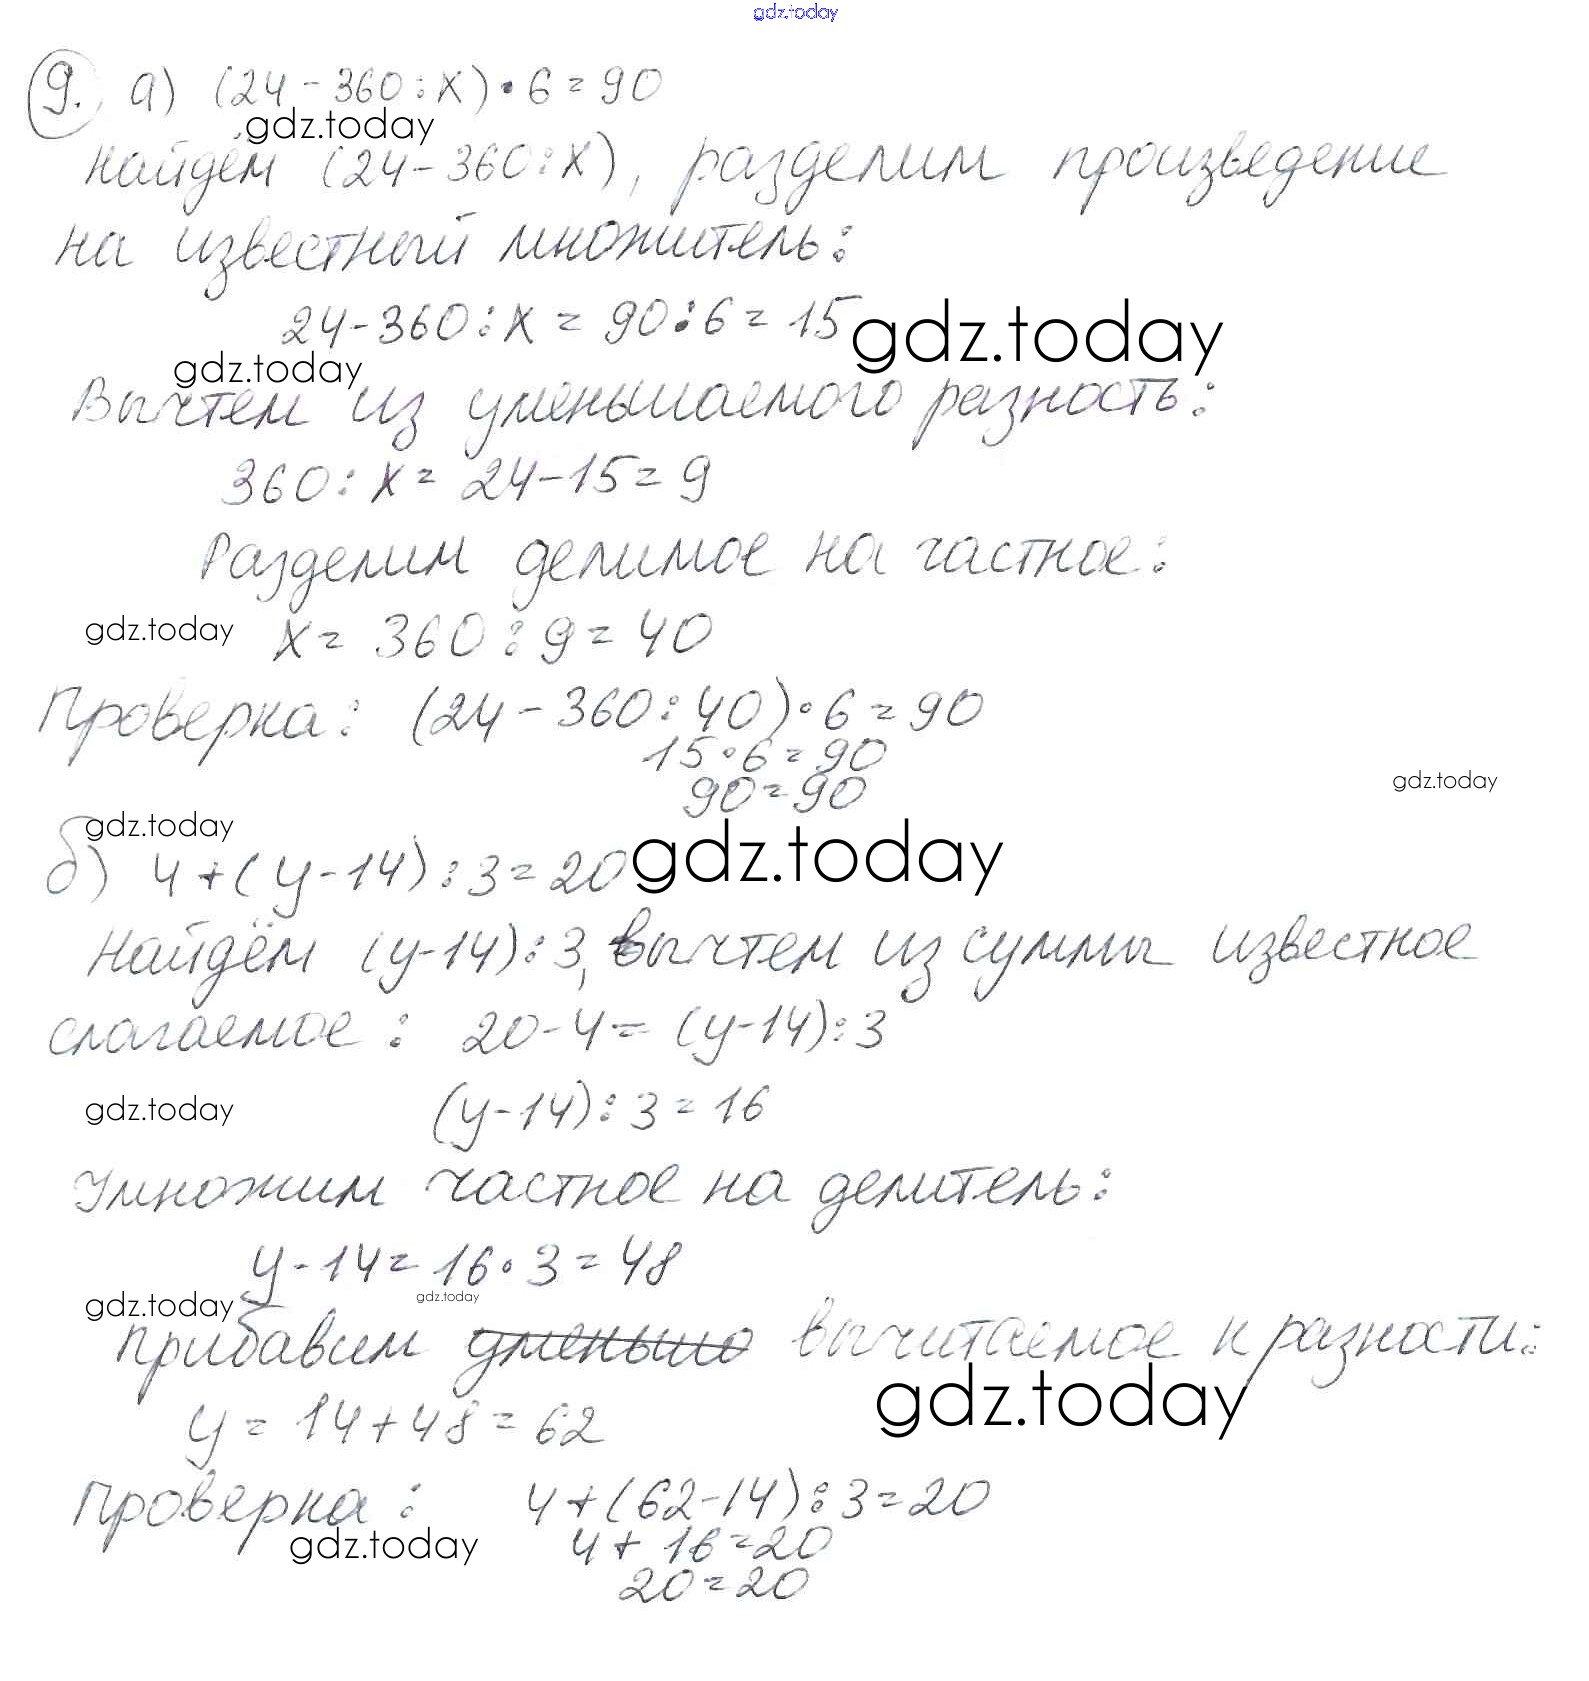 gdz.today
9. а) (24-360:x)•6=90
gdz.today
Найдём (24-360:x), разделим произведение
на известный множитель:
24-360:x = 90:6=15
gdz.today
gdz.today
Вычтем из уменьшаемого разность:
360:x= 24-15=9
Разделим делимое на частное:
gdz.today
x= 360:9=40
Проверка: (24-360:40)•6=90
15•6=90
gdz.today
90=90
gdz.today
б) 4+(y-14):3=20
gdz.today
Найдём (y-14):3, вычтем из суммы известное
слагаемое: 20-4=(y-14):3
gdz.today
(y-14):3=16
Умножим частное на делитель:
y-14=16•3=48
gdz.today
gdz.today
Прибавим уменьшо вычитаемое к разности:
gdz.today
y=14+48=62
Проверка: 4+(62-14):3=20
gdz.today
4+16=20
20=20